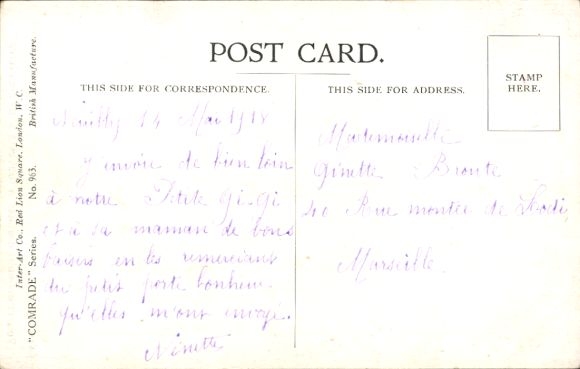 POST CARD.
THIS SIDE FOR CORRESPONDENCE.
THIS SIDE FOR ADDRESS.
STAMP
HERE.
Inter-Art Co., Red Lion Square, London, W.C.
British Manufacture.
"COMRADE" Series.
No. 963.
Neuilly 14 Mai 1918
J'envoie de bien loin
à notre Petite Gi-Gi
et à sa maman de bons
baisers en les remerciant
du petit porte bonheur
qu'elles m'ont envoyé.
Ninette
Mademoiselle
Ginette Bronte
40 Rue montée de Lodi
Marseille.